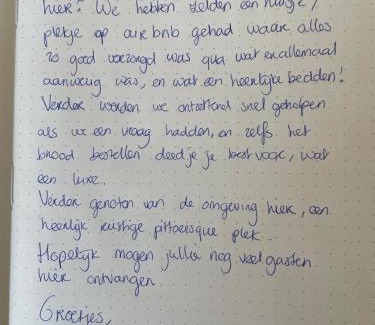 hier! We hebben zelden een huisje/
plekje op airbnb gehad waar alles
zo goed verzorgd was qua wat er allemaal
aanwezig was, en wat een heerlijke bedden!
Verder werden we ontzettend snel geholpen
als we een vraag hadden, en zelfs het
brood bestellen deed je je best voor, wat
een luxe.
Verder genoten van de omgeving hier, een
heerlijk rustige pittoresque plek.
Hopelijk mogen jullie nog veel gasten
hier ontvangen.
Groetjes,